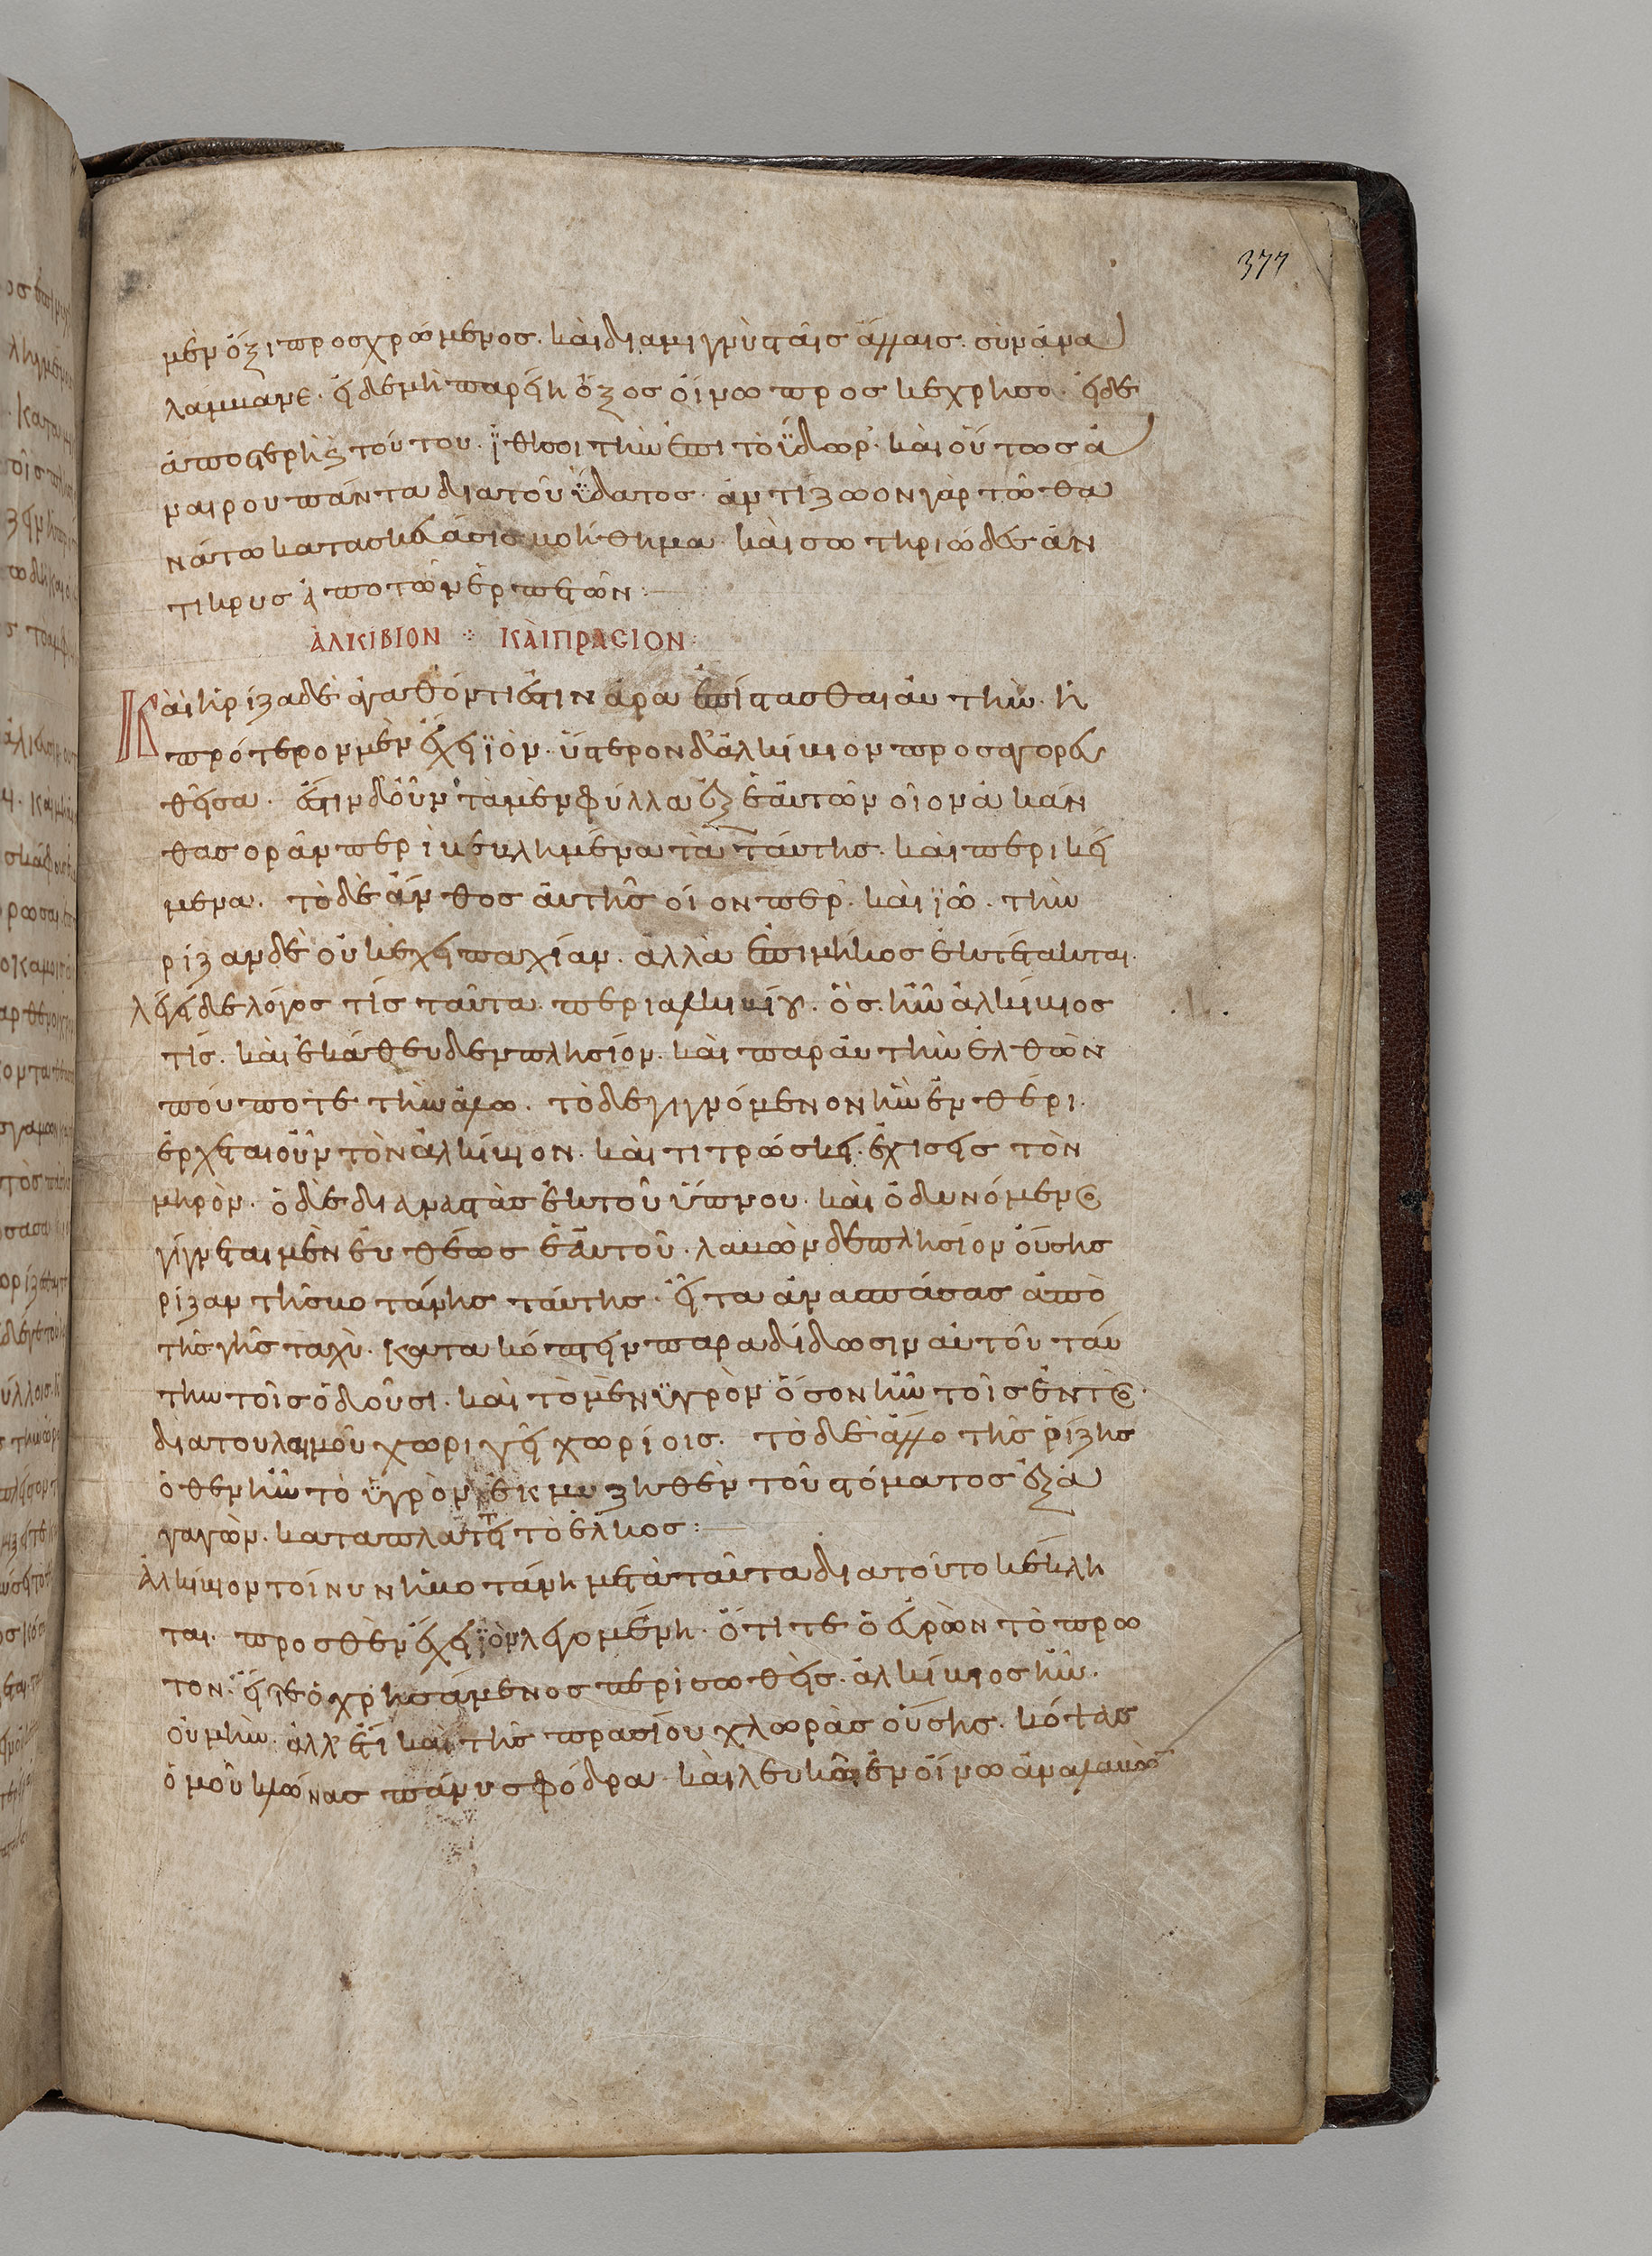 377
μὲν ὄξι προσχρώμενος. καὶ διαμιγνὺ ταῖς ἄλλαις. συνανα
λάμβανε. εἰ δὲ μὴ παρείη ὄξος οἴνω προσκέχρησο. εἰ δὲ
ἀποστερηῖς τούτου. ἴθι σοι τὴν ἐπὶ τὸ ὕδωρ. καὶ οὕτως ἀ
ναιρου πάντα διὰ τοῦ ὕδατος. ἀντίζωον γὰρ τῶ θα
νάτω κατασκευάσεις βοήθημα καὶ σωτηριῶδες ἀν
τικρυς ἀπὸ τῶν ἑρπετῶν:
ἈΛΚΙΒΙΟΝ ⁘ ΚΑῚ ΠΡΑΣΙΟΝ:
Καὶ ἡ ῥίζα δὲ ἀγαθόν τι ἐστιν ἄρα ἐπίστασθαι αὐτὴν. ἡ
πρότερον μὲν ἐχεῖϊον. ὕστερον δ' ἀλκίβιον προσαγορευ
θεῖσα. ἔστιν δ' οὖν τὰ μὲν φύλλα ἐξ ἑαυτῶν οἷον ἀκάν
θας ὁρᾶν περικεκλημένα τὰ ταύτης. καὶ περικεί
μενα. τὸ δὲ ἄνθος αὐτῆς οἷονπερ καὶ ἴω. τὴν
ρίζαν δὲ οὐκ ἔχει παχίαν. ἀλλὰ ἐπιμήκος ἐκτέταται.
λέγει δὲ λόγος τίς ταῦτα περὶ ἀλκιβίου. ὃς ἦν ἀλκίβιος
τίς. καὶ ἐκάθευδεν πλησίον. καὶ παρ αὐτὴν ἐλθὼν
πού ποτε τὴν ἅλω. τὸ δὲ γιγνόμενον ἦν ἐν θέρι.
ἔρχεται οὖν τὸν ἀλκίβιον. καὶ τιτρώσκει ἔχις εἰς τὸν
μηρὸν. ὁ δὲ διαναστὰς ἐκ τοῦ ὕπνου. καὶ ὀδυνόμενος
γίγνεται μὲν εὐθέως ἑαυτοῦ. λαβὼν δὲ πλησίον οὔσης
ρίζαν τῆς βοτάνης ταύτης. εἶτα ἀνασπάσας ἀπὸ
τῆς γῆς ταχὺ. κατα κόπτειν παραδίδωσιν αὐτοῦ ταύ
την τοῖς ὀδοῦσι. καὶ τὸ μὲν ὑγρὸν ὅσον ἦν τοῖς ἐντὸς
διὰ του λαιμοῦ χωριγεῖ χωρίοις. τὸ δὲ ἄλλο τῆς ρίζης
ὅθεν ἦν τὸ ὑγρὸν ἐκμυζηθὲν τοῦ στόματος ἐξα
γαγὼν. καταπλάττει τὸ ἕλκος:
ἀλκίβιον τοίνυν ἡ βοτάνη μετὰ ταῦτα διὰ τοῦτο κέκλη
ται. προσθὲν ἐχεῖϊον λεγομένη. ὅτι τε ὁ εὑρὼν τὸ πρῶ
τον. εἴτε ὁ χρησάμενος περισωθεὶς. ἀλκίβιος ἦν.
οὐ μὴν ἀλλ' ἔτι καὶ τῆς πρασίου χλωρὰς οὔσης. κόψας
ὁμοῦ κλῶνας πάνυ σφόδρα καὶ λευκῶ ἐν οἴνω ἀναλαβὼν